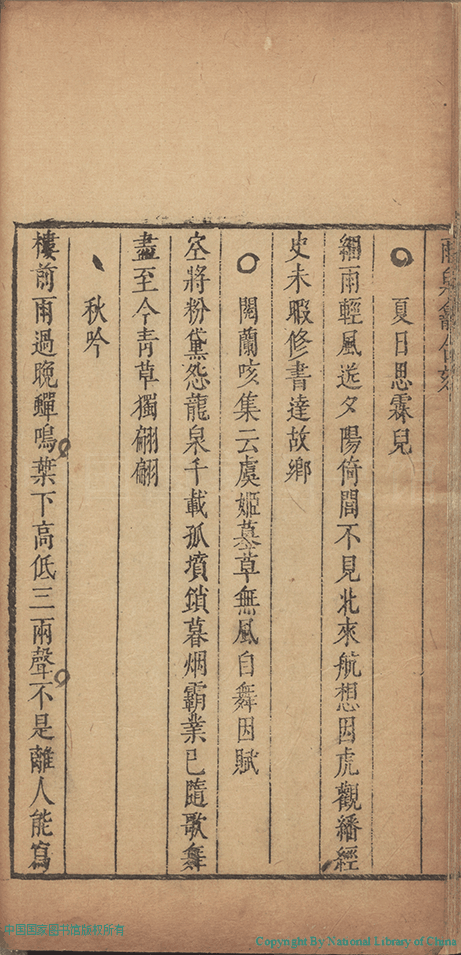 夏日思霖兒
細雨輕風送夕陽倚閭不見北來航想因虎觀繙經
史未暇修書達故鄉
閱蘭咳集云虞姬墓草無風自舞因賦
空將粉黛怨龍泉千載孤墳鎖暮烟霸業已隨歌舞
盡至今青草獨翩翩
秋吟
樓前雨過晚蟬鳴葉下高低三兩聲不是離人能寫
中国国家图书馆版权所有
Copyright By National Library of China